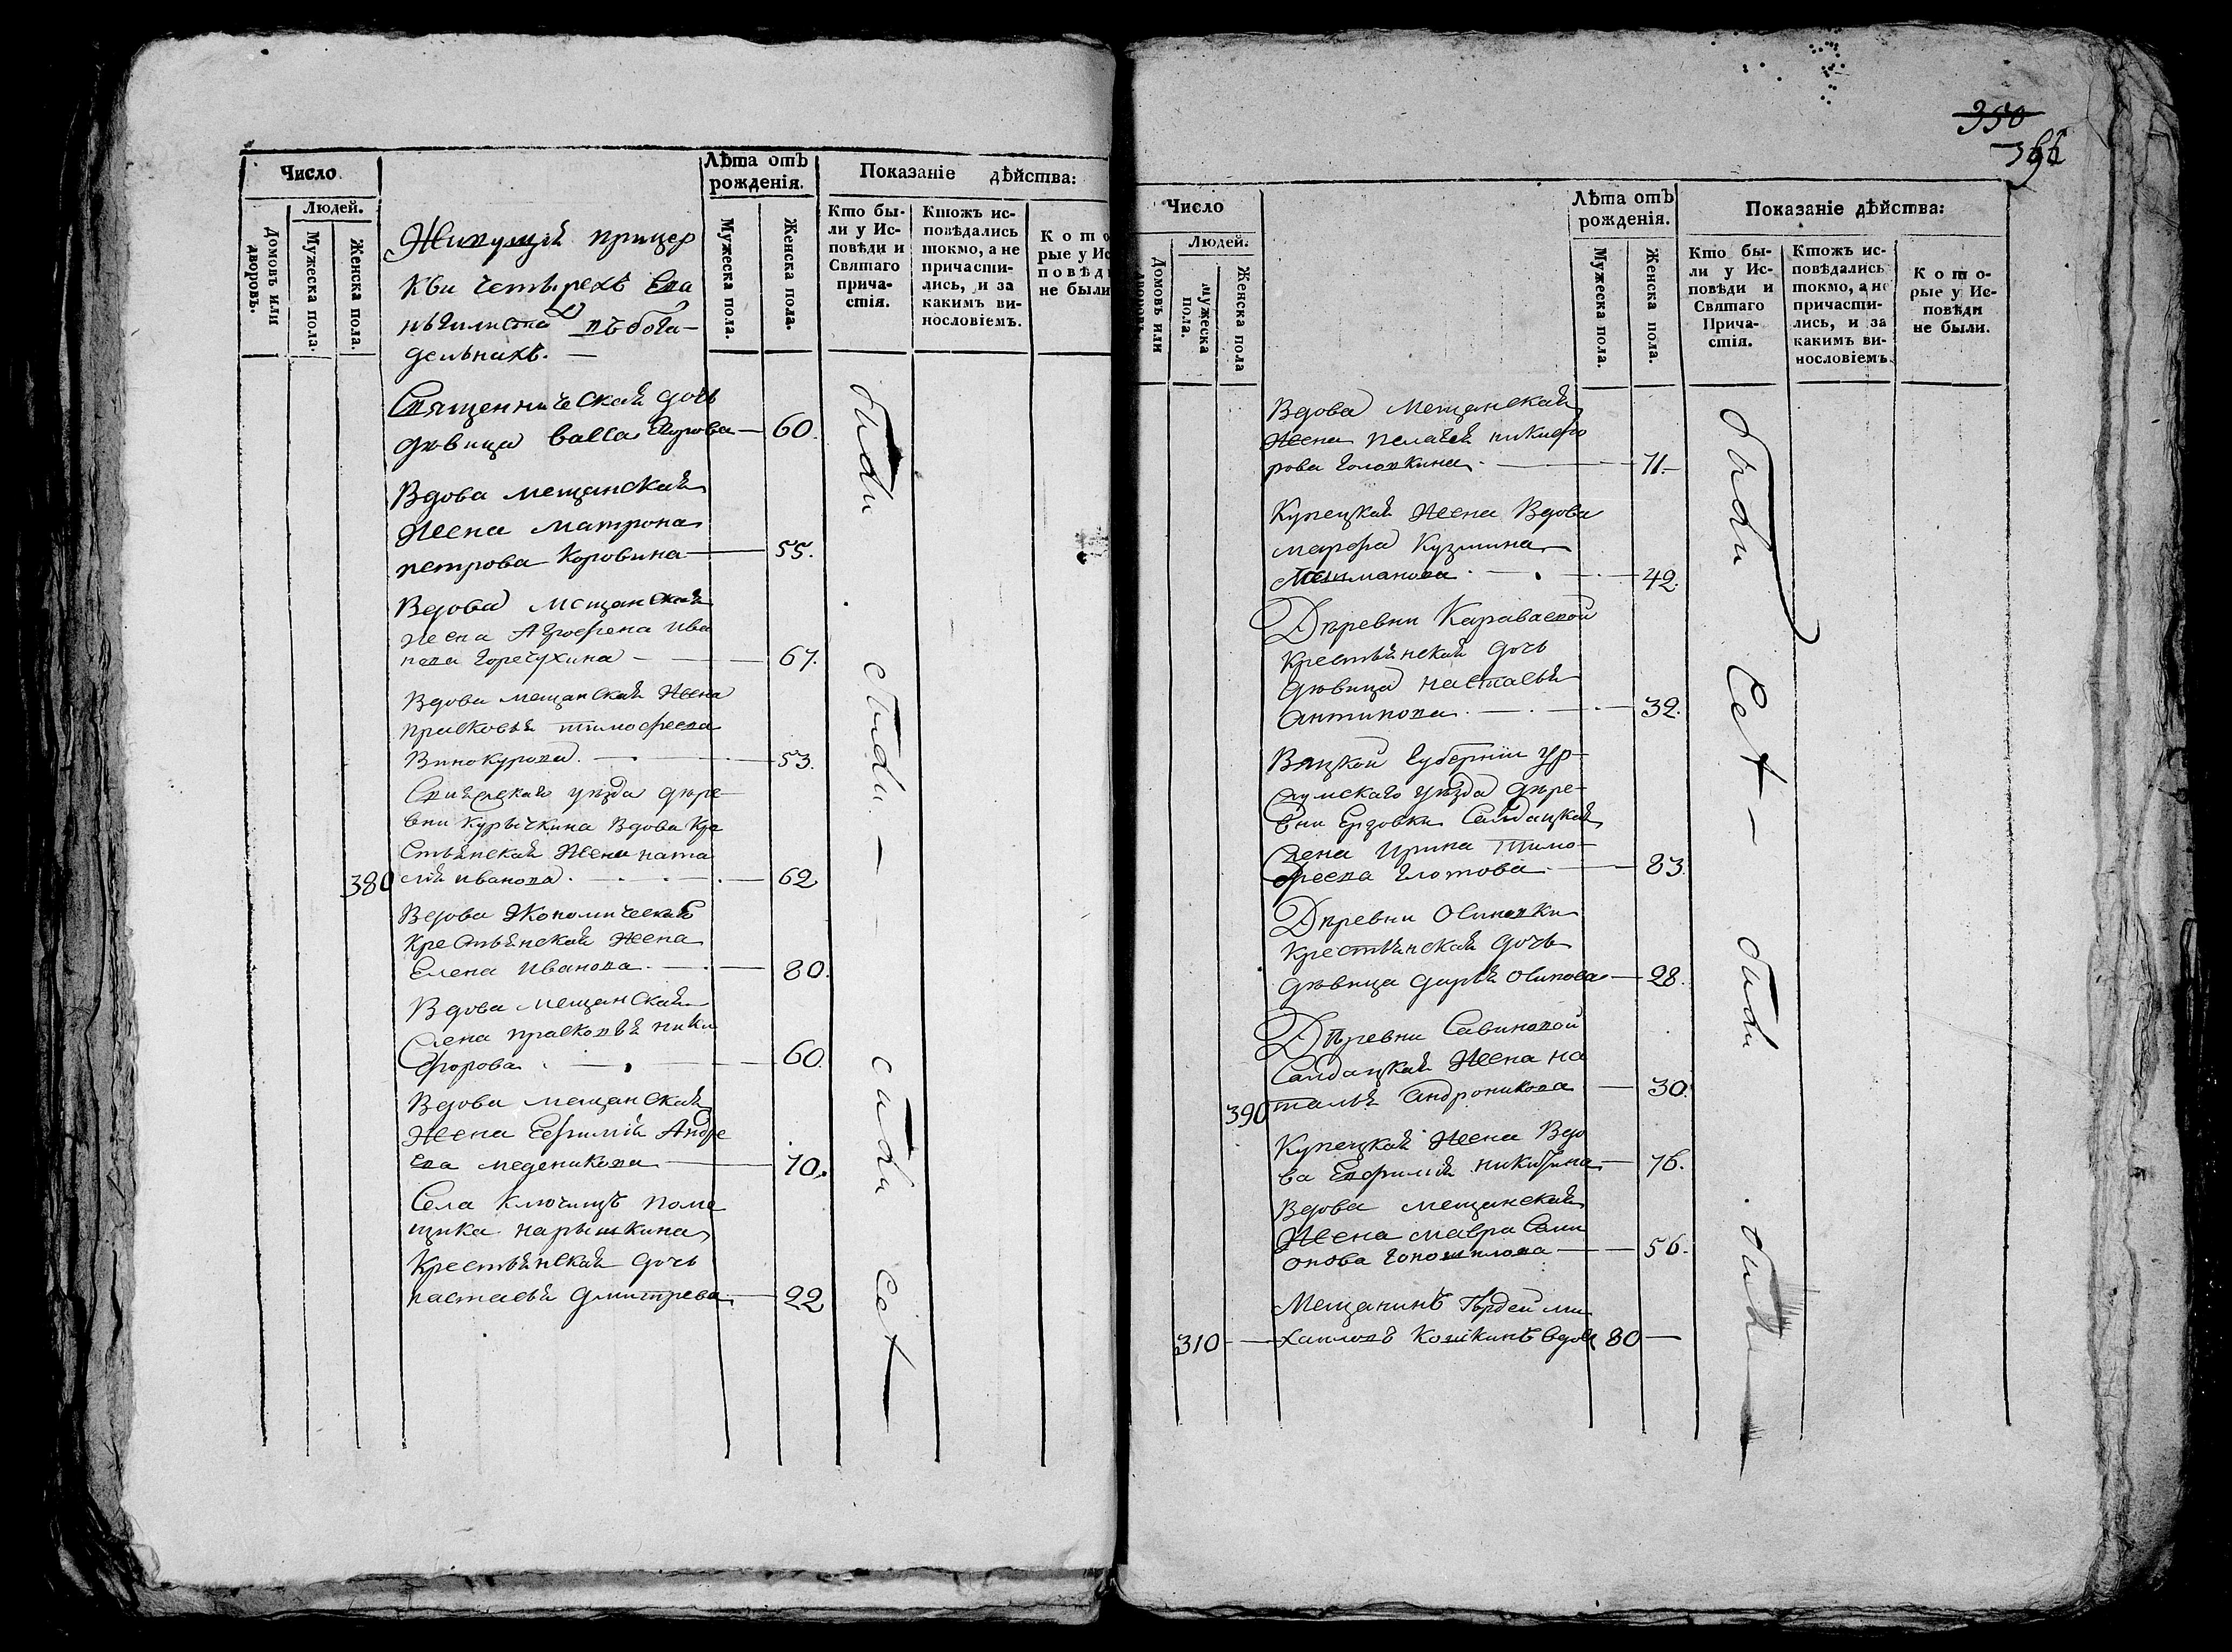 Число
Людей.
Домовъ или дворовъ.
Мужеска пола.
Женска пола.
Лѣта отъ рожденія.
Мужеска пола.
Женска пола.
Показаніе дѣйства:
Кто бы-
ли у Ис-
повѣди и
Святаго
прича-
стія.
Ктожъ ис-
повѣдались
токмо, а не
причасти-
лись, и за
какимъ ви-
нословіемъ.
К о т о
рые у Ис
п о в ѣ д и
не были
Живущія прицер
кви четырехъ Ева
нгилиста въ бога-
дельнахъ. —
Священническая дочь
дѣвица Васса Юрова — 60.
Вдова мещанская
Жена Матрона
петрова Коровина — 55.
Вдова мещанская
жена Агрофена ива
нова Горечухина — 67.
Вдова мещанская жена
прасковья тимофеева
Винокурова. — 53.
уѣзда дѣре-
вни Курычкина Вдова Кре
стьянская Жена ната
380 лія иванова. — 62
Вдова Экономическая
Крестьянская Жена
Елена иванова. — 80.
Вдова мещанская
жена прасковья ники
форова. — 60.
Вдова мещанская
Жена Ефимия Андре
ева меденикова — 70.
Села Ключищъ поме
щика нарышкина
Крестьянская дочь
настасья дмитрева. — 22
350
Число
Людей.
Домовъ или дворовъ.
мужеска пола.
Женска пола
Лѣта отъ рожденія.
Мужеска пола.
Женска пола.
Показаніе дѣйства:
Кто бы-
ли у Ис-
повѣди и
Святаго
Прича-
стія.
Ктожъ ис-
повѣдались
токмо, а не
причасти-
лись, и за
какимъ ви-
нословіемъ.
К о т о-
рые у Ис-
повѣди
не были.
Вдова мещанская
Жена пелагея никифо
рова Головкина. — 71. —
Купецкая жена Вдова
марфа Кузмина
— 42.
Дѣревни Караваевой
Крестьянская дочь
дѣвица настасья
Антипова. — 32.
Вяцкой Губернии Ур-
жумскаго уѣзда дѣре-
вни Ерзовки Салдацкая
жена ирина тимо-
феева Глотова. — 83.
Дѣревни Осиновки
Крестьянская дочь
дѣвица дарья осипова — 28.
Дѣревни Савиновой
Салдацкая Жена на
390 талья андроникова — 30.
Купецкая Жена Вдо
ва Евфимия никитина — 76.
Вдова мещанская
Жена мавра Сами
онова — 56.
Мещанинъ Гордей ми
310 — хаиловъ Кошкинъ вдовъ 80 —
были